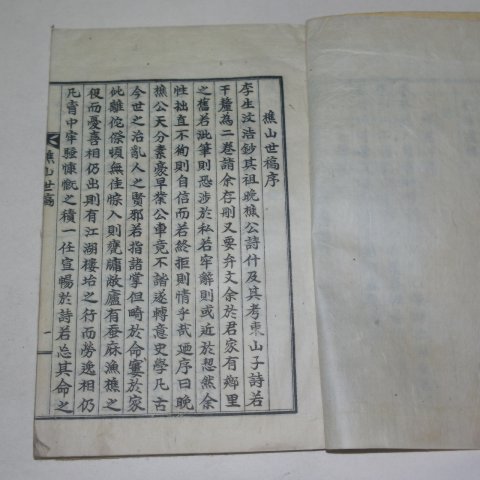 樵山世稿序
李生汶浩鈔其祖晩樵公詩什及其考東山子詩若
干釐爲二卷請余存刪又要弁文余於君家有鄕里
之舊若泚筆則恐涉於私若牢辭則或近於恝然余
性拙直不徇則自信而若終拒則情乎哉廼序曰晩
樵公天分素豪早業公車竟不諧遂轉意史學凡古
今世之治亂人之賢邪若指諸掌但畸於命窶於家
仳離侘傺頓無佳悰入則甕牖敝廬有蚕麻漁樵之
役而憂喜相仍出則有江湖樓坮之行而勞逸相仍
凡胷中牢騷慷慨之積一任宣暢於詩若忘其命之
樵山世稿
一